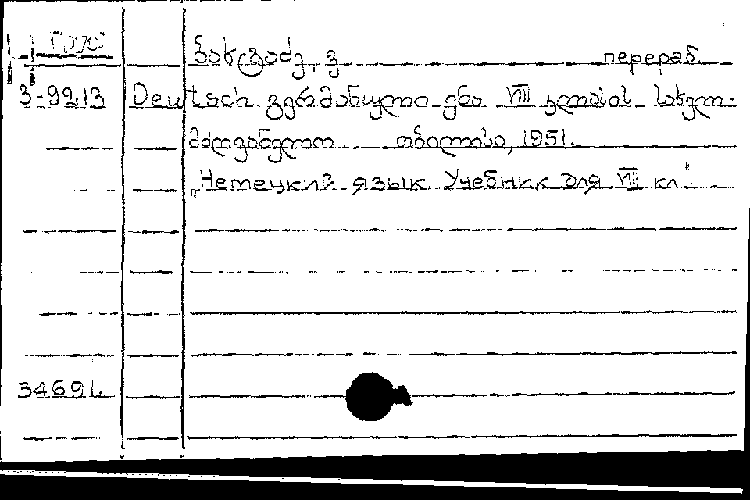 перераб.
3-9213 Deutsch გერმანული ენა VIII კლასის სახელ-
მძღვანელო თბილისი, 1951.
„Немецкий язык Учебник для VIII кл"
34691